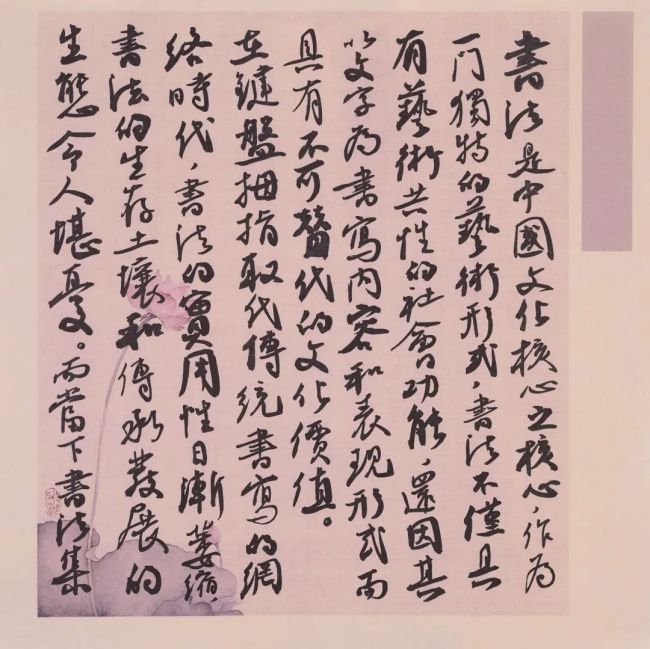 書法是中國文化核心之核心，作為
一門獨特的藝術形式，書法不僅具
有藝術共性的社會功能，還因其
以文字為書寫內容和表現形式而
具有不可替代的文化價值。
在鍵盤拇指取代傳統書寫的網
絡時代，書法的實用性日漸萎縮，
書法的生存土壤和傳承發展的
生態令人堪憂。而當下書法集